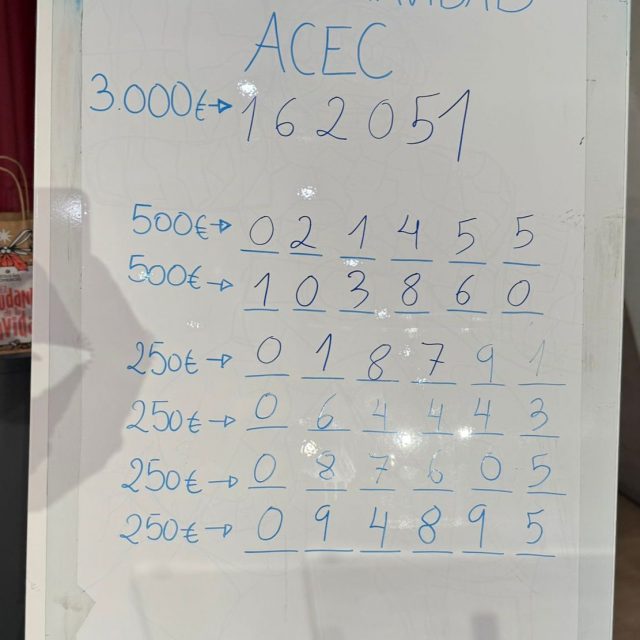 NAVIDAD
ACEC
3.000€→ 162051
500€→ 021455
500€→ 103860
250€→ 018791
250€→ 064443
250€→ 087605
250€→ 094895